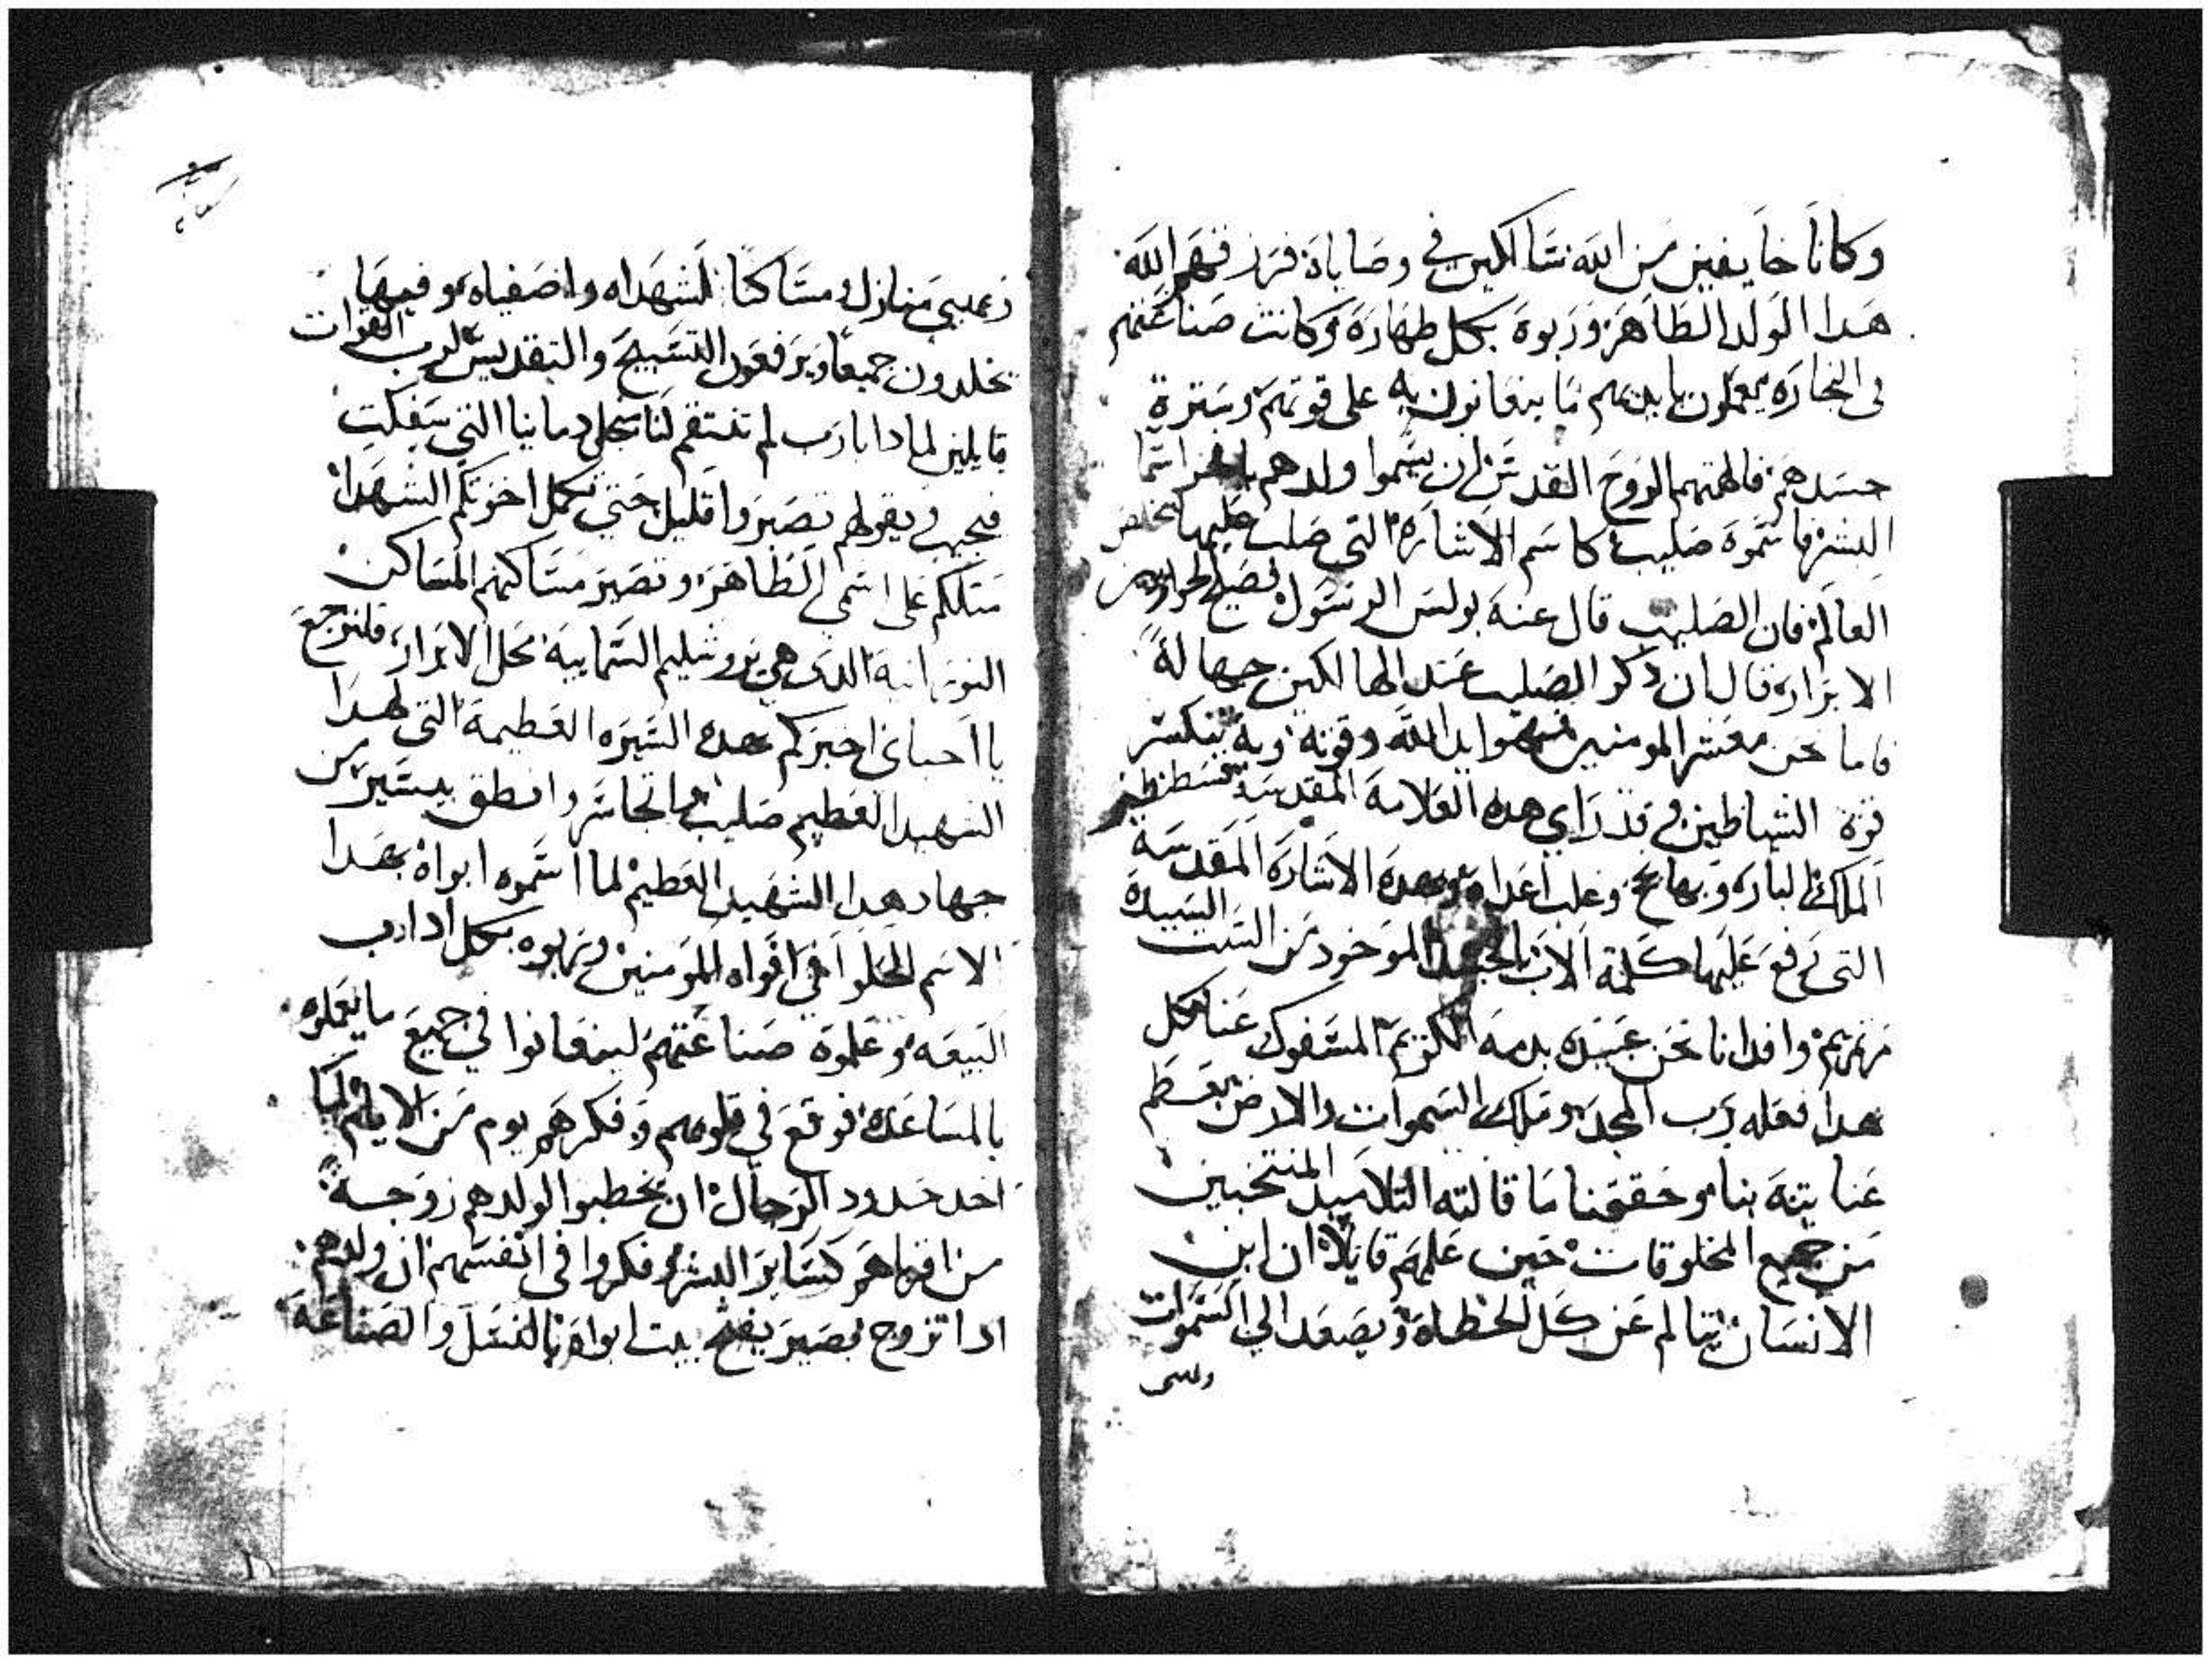 وكانا خايفين من الله سالكين في وصاياه فرزقهم الله
هدا الولد الطاهر وربوه بكل طهارة وكانت صناعتهم
في النجاره يعملون بايديهم ما يتقاتون به علي قوتهم وسترة
جسدهم فالهمهم الروح القدس ان يسموا ولدهم بافخر اسما
البشر فاسموه صليب كاسم الاشارة التي صلب عليها مخلص
العالم فان الصليب قال عنه بولس الرسول فصيح الحواريين
الابرار قال ان ذكر الصليب عند الهالكين جهالة
فاما نحن معشر المومنين فهوا يد الله وقوته وبه تنكسر
قوة الشياطين وقد راي هده العلامة المقدسة قسطنطين
الملك البار وبها نجح وغلب اعداه وبهده الاشارة المقدسة
التي رفع عليها كلمة الاب بالجسد الماخود من الست السيدة
مرتمريم وافدانا نحن عبيده بدمه الكريم المسفوك عنا كل
هدا فعله رب المجد وملك السموات والارض بعظم
عنايته بنا وحققنا ما قالته التلاميد المنتخبين
من جميع المخلوقات حين علمهم قايلا ان ابن
الانسان يتالم عن كل الخطاه ويصعد الي السموات
منازل مساكنا لشهداه واصفياه وفيها
يخلدون جميعا ويرفعون التسبيح والتقديس لرب القوات
قايلين لمادا يارب لم تنتقم لنا بحل دمايانا التي سفكت
فيجيب ويقول لهم تصبروا قليل حتي تكمل اخوتكم الشهدا
مثلكم علي اسمي الطاهر وتصير مساكنهم المساكن
النورانية الدي هي يروشليم السمايية محل الابرار فلنرجع
يا احباي اخبركم بهده السيره العظيمة التي لهدا
الشهيد العظيم صليب وانجاسر وانطق بيسير من
جهاد هدا الشهيد العظيم لما اسموه ابواه بهدا
الاسم الحلو في افواه المومنين وربوه بكل اداب
البيعه وعلموه صناعتهم ليتعانوا في جميع ما يعملوه
بالمساعدة فوقع في قلوبهم وفكرهم يوم من الايام لما
اخد حدود الرجال ان يخطبوا لولدهم زوجة
من اقرباهم كساير البشر وفكروا في انفسهم ان ولدهم
ادا تزوج يصير يفتح بيت ابواه بالنسل والصناعة